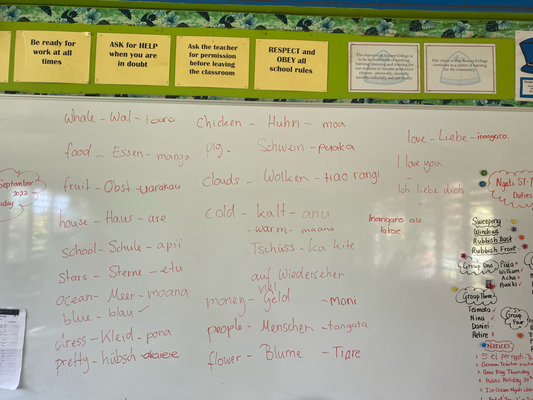 Be ready for
work at all
times
ASK for HELP
when you are
in doubt
Ask the teacher
for permission
before leaving
the classroom
RESPECT and
OBEY all
school rules
September
2022
whale - Wal - toora
food - Essen - manga
fruit - Obst - uarakau
house - Haus - are
school - Schule - apii
Stars - Sterne - etu
ocean - Meer - moana
blue - blau
dress - Kleid - pona
pretty - hübsch
Chicken - Huhn - moa
pig - Schwein - puaka
clouds - Wolken - tiao rangi
cold - kalt - anu
- warm - maana
Tschüss - ka kite
auf Wiedersehen
viel
money - Geld - Moni
people - Menschen - tangata
flower - Blume - Tiare
love - Liebe - inangaro
I love you
-
Ich liebe dich
-
Inangaro au
iakoe
Ngati ST-T
Duties
Sweeping
Windows
Rubbish Back
Rubbish Front
Group One
William
Group Three
Teimata
Nina
Daniel
Retire
Group
Four
NOTICES